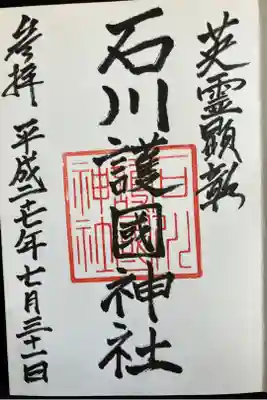 英霊顕彰
石川護國神社
参拝 平成二七年七月三十一日
石川護國神社